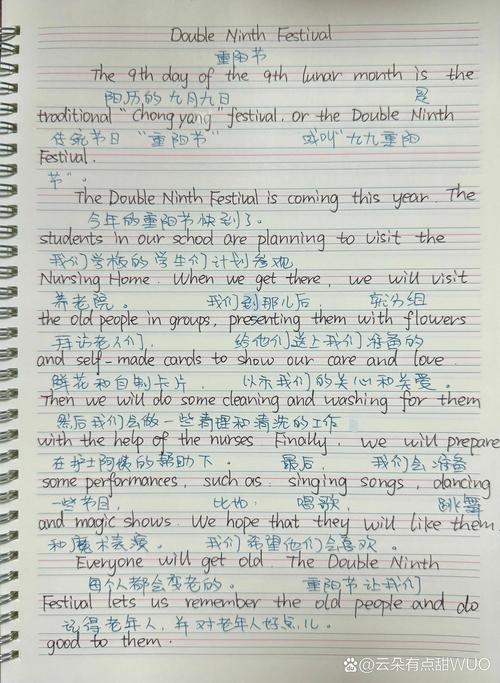 Double Ninth Festival
重阳节
The 9th day of the 9th lunar month is the
阳历的九月九日 是
traditional "Chong yang" festival, or the Double Ninth
传统节日 "重阳节" 或叫"九九重阳
Festival.
节"。
The Double Ninth Festival is coming this year. The
今年的重阳节快到了。
students in our school are planning to visit the
我们学校的学生们计划参观
Nursing Home. When we get there, we will visit
养老院。 我们到那儿后, 就分组
the old people in groups, presenting them with flowers
拜访老人们, 给他们送上我们准备的
and self-made cards to show our care and love.
鲜花和自制卡片, 以示我们的关心和关爱。
Then we will do some cleaning and washing for them
然后我们会做一些清理和清洗的工作
with the help of the nurses. Finally, we will prepare
在护士阿姨的帮助下。 最后, 我们会准备
some performances, such as: singing songs, dancing
一些节目, 比如: 唱歌, 跳舞
and magic shows. We hope that they will like them.
和魔术表演。 我们希望他们会喜欢。
Everyone will get old. The Double Ninth
每个人都会变老的。 重阳节让我们
Festival lets us remember the old people and do
记得老年人,并对老年人好点儿。
good to them.
@云朵有点甜WUO